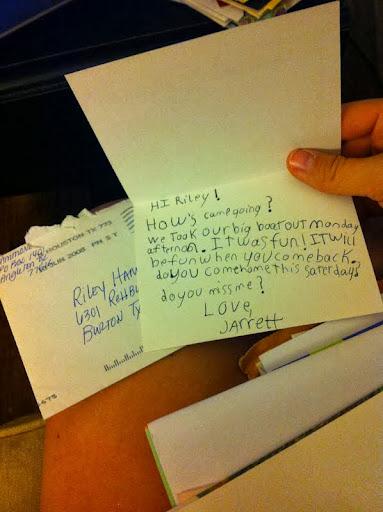 HI Riley!
How's camp going?
we Took our big boat out monday
afternoon. IT was fun! IT WILL
be fun when you come back.
do you come home this saterday?
do you miss me?
LOVE,
JARRETT
HOUSTON TX 773
2008 PM 5 T
PO Box 1461
Angleton TX
Riley
6301
Burton